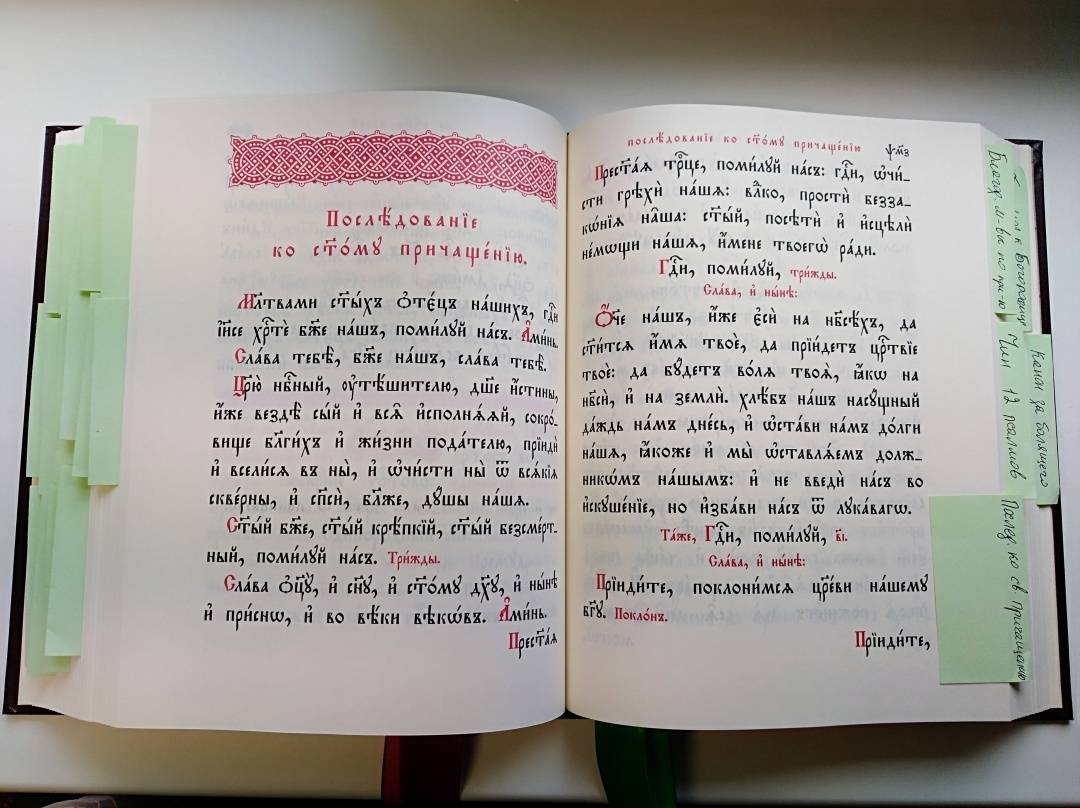 Послѣ́дованїе
ко ст҃о́му причаще́нїю.
Мл҃твами ст҃ы́хъ ѻ҆тє́цъ на́шихъ, гдⷭ҇и
і҆и҃се хрⷭ҇тѐ бж҃е на́шъ, поми́лꙋй на́съ. А҆ми́нь.
Сла́ва тебѣ̀, бж҃е на́шъ, сла́ва тебѣ̀.
Цр҃ю̀ нбⷭ҇ный, ᲂу҆тѣ́шителю, дш҃е и҆́стины,
и҆́же вездѣ̀ сы́й и҆ всѧ̑ и҆сполнѧ́ѧй, сокро́-
вище бл҃ги́хъ и҆ жи́зни пода́телю, прїидѝ
и҆ всели́сѧ въ ны̀, и҆ ѡ҆чи́сти ны̀ ѿ всѧ́кїѧ
скве́рны, и҆ сп҃сѝ, бл҃же, дꙋ́шы на́шѧ.
Ст҃ы́й бж҃е, ст҃ы́й крѣ́пкїй, ст҃ы́й безсме́рт-
ный, поми́лꙋй на́съ. Три́жды.
Сла́ва ѻ҆ц҃ꙋ̀, и҆ сн҃ꙋ, и҆ ст҃о́мꙋ дх҃ꙋ, и҆ ны́нѣ
и҆ при́снѡ, и҆ во вѣ́ки вѣкѡ́въ. А҆ми́нь.
Прест҃а́ѧ
послѣ́дованїе ко ст҃о́мꙋ причаще́нїю
ѱм҃з
Прест҃а́ѧ трⷪ҇це, поми́лꙋй на́съ: гдⷭ҇и, ѡ҆чи́-
сти грѣхѝ на́шѧ: влⷣко, простѝ безза-
кѡ́нїѧ на̑ша: ст҃ы́й, посѣтѝ и҆ и҆сцѣлѝ
не́мѡщи на́шѧ, и҆́мене твоегѡ̀ ра́ди.
Гдⷭ҇и, поми́лꙋй, три́жды.
Сла́ва, и҆ ны́нѣ:
Ѻ҆́ч҃е на́шъ, и҆́же є҆сѝ на нб҃сѣ́хъ, да
ст҃и́тсѧ и҆́мѧ твоѐ, да прїи́детъ црⷭ҇твїе
твоѐ: да бꙋ́детъ во́лѧ твоѧ̀, ꙗ҆́кѡ на
нб҃сѝ, и҆ на землѝ. хлѣ́бъ на́шъ насꙋ́щный
да́ждь на́мъ дне́сь, и҆ ѡ҆ста́ви на́мъ до́лги
на́шѧ, ꙗ҆́коже и҆ мы̀ ѡ҆ставлѧ́емъ долж-
никѡ́мъ на́шымъ: и҆ не введѝ на́съ во
и҆скꙋше́нїе, но и҆зба́ви на́съ ѿ лꙋка́вагѡ.
Та́же, Гдⷭ҇и, поми́лꙋй, в҃і.
Сла́ва, и҆ ны́нѣ:
Прїиди́те, поклони́мсѧ цр҃е́ви на́шемꙋ
бг҃ꙋ. Покло́нъ.
Прїиди́те,
к Богородице
Благод. м-вы по при-ю
Чин 12 псалмов
Канон за болящего
Послед. ко св. Причащению